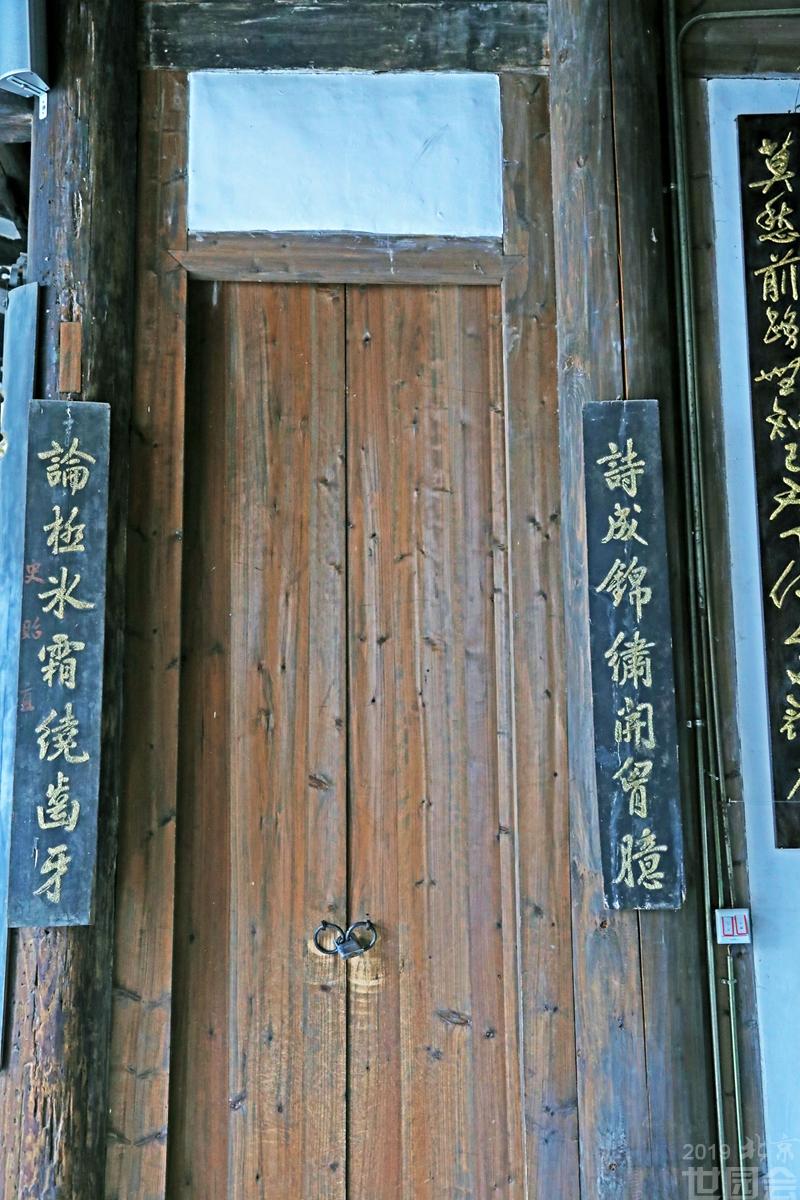 莫愁前路無知己天下何人不
詩成錦繡開胷臆
論極冰霜繞齒牙
史貽直
2019 北京
世园会